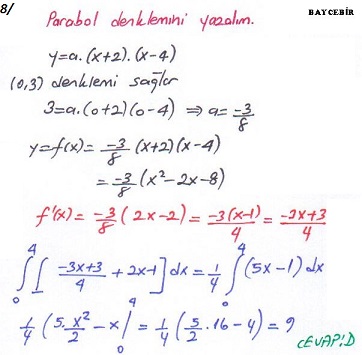 8/
BAYCEBİR
Parabol denklemini yazalım.
y=a.(x+2).(x-4)
(0,3) denklemi sağlar
3=a.(0+2)(0-4) ⇒ a=-3/8
y=f(x)= -3/8 (x+2)(x-4)
= -3/8 (x²-2x-8)
f'(x)= -3/8 (2x-2) = -3(x-1)/4 = -3x+3/4
∫₀⁴ [ -3x+3/4 + 2x-1 ] dx = 1/4 ∫₀⁴ (5x-1) dx
1/4 (5.x²/2 - x |₀⁴ = 1/4 (5/2 .16-4) = 9
CEVAP:D